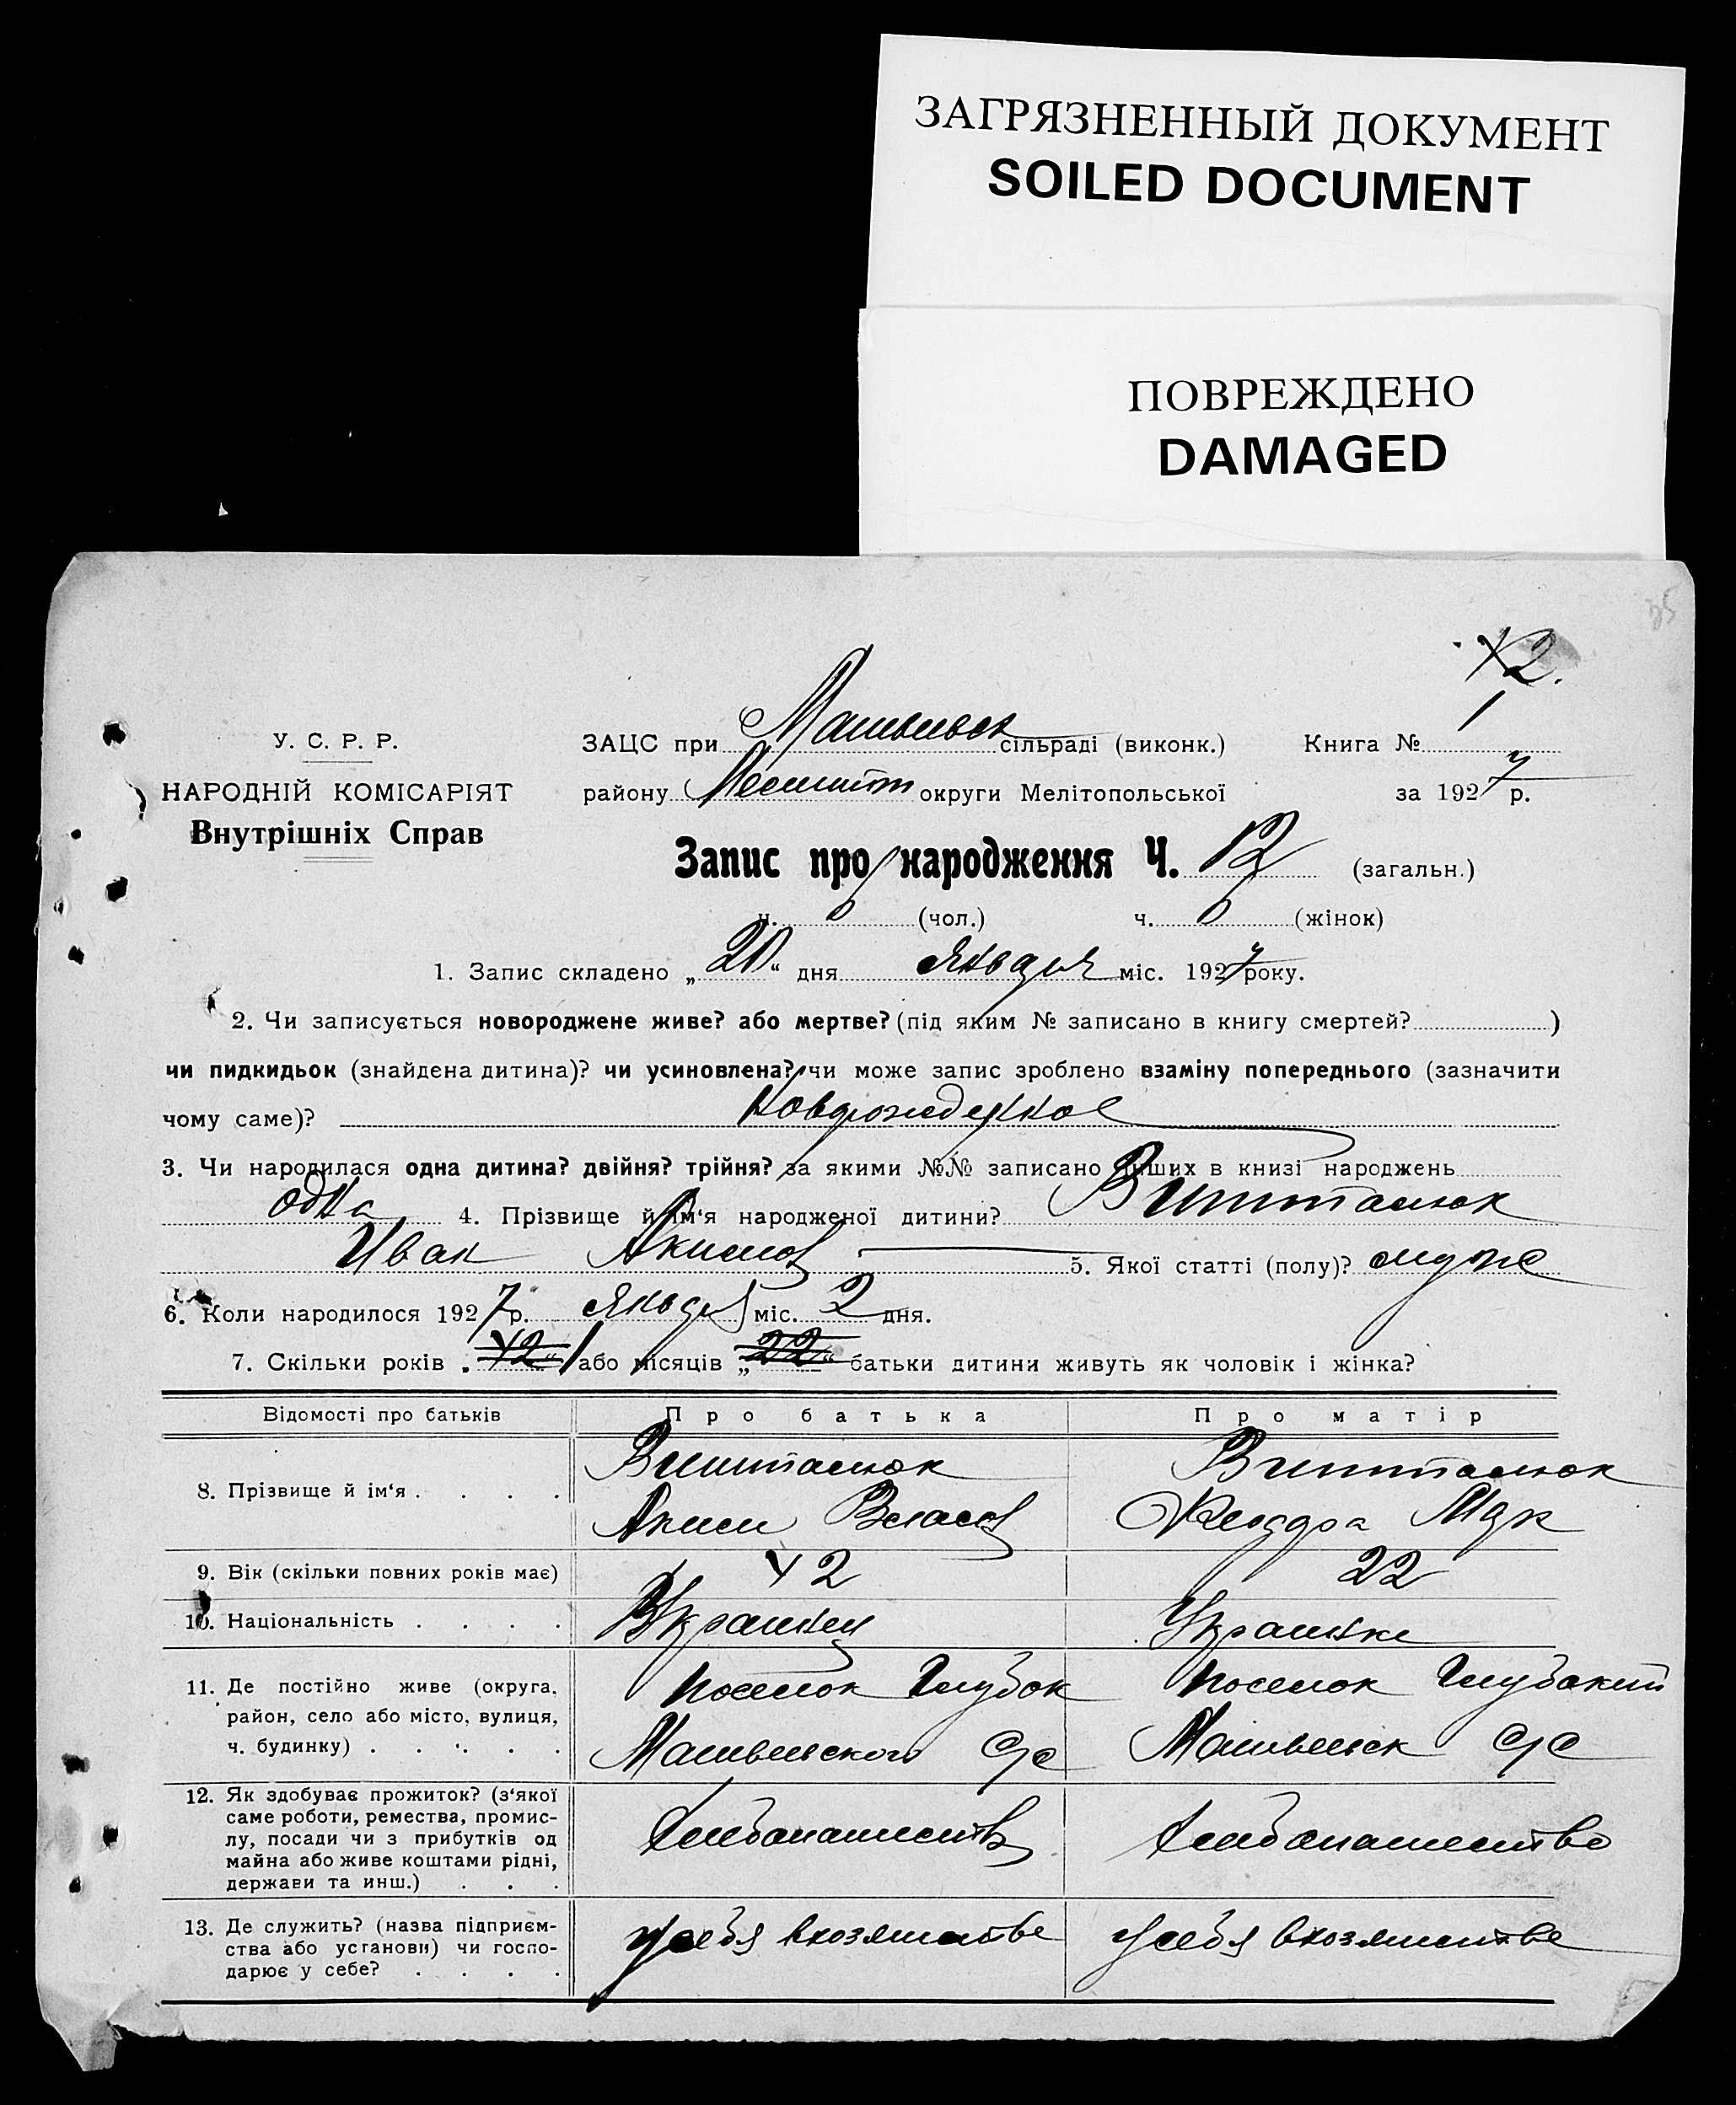 ЗАГРЯЗНЕННЫЙ ДОКУМЕНТ
SOILED DOCUMENT
ПОВРЕЖДЕНО
DAMAGED
35
У. С. Р. Р.
НАРОДНІЙ КОМІСАРІЯТ
Внутрішніх Справ
ЗАЦС при сільраді (виконк.) Книга № 1
району округи Мелітопольської за 1927 р.
Запис про народження Ч. 12 (загальн.)
ч. (чол.) ч. (жінок)
1. Запис складено „20“ дня Января міс. 1927 року.
2. Чи записується новороджене живе? або мертве? (під яким № записано в книгу смертей? )
чи пидкидьок (знайдена дитина)? чи усиновлена? чи може запис зроблено взаміну попереднього (зазначити
чому саме)?
3. Чи народилася одна дитина? двійня? трійня? за якими №№ записано инших в книзі народжень
одна 4. Прізвище й ім‘я народженої дитини?
Иван Акимов 5. Якої статті (полу)? муже
6. Коли народилося 1927 р. Января міс. 2 дня.
7. Скільки років „42“ або місяців „22“ батьки дитини живуть як чоловік і жінка?
Відомості про батьків Про батька Про матір
8. Прізвище й ім‘я . . . .
Аким Власов
9. Вік (скільки повних років має) 42 22
10. Національність . . . . Украинец Украинке
11. Де постійно живе (округа, район, село або місто, вулиця, ч. будинку) . . . . .
поселок Глубок поселок Глубокий
с/с с/с
12. Як здобуває прожиток? (з‘якої
саме роботи, ремества, промис-
лу, посади чи з прибутків од
майна або живе коштами рідні,
держави та инш.) . . .
Хлебопашеств Хлебопашество
13. Де служить? (назва підприєм-
ства або установи) чи госпо-
дарює у себе? . . . .
усебя вхозяистве усебя вхозяистве